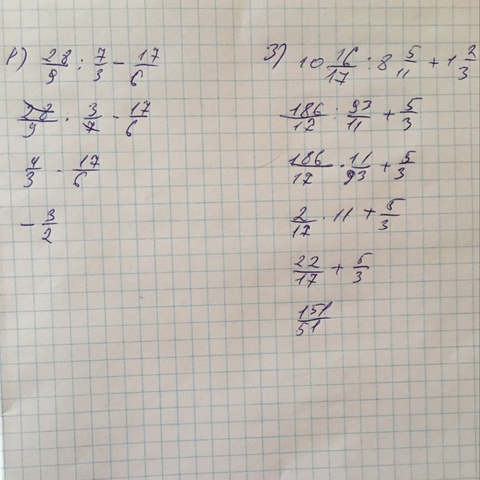 1) 28/9 : 7/3 - 17/6
28/9 · 3/7 - 17/6
4/3 - 17/6
- 3/2
3) 10 16/17 : 8 5/11 + 1 2/3
186/17 : 93/11 + 5/3
186/17 · 11/93 + 5/3
2/17 · 11 + 5/3
22/17 + 5/3
151/51